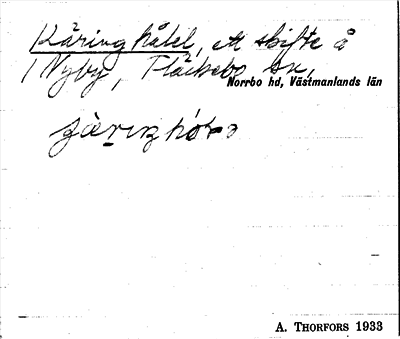 Käringhålet, ett skifte å
Nyby, Fläckebo sn,
Norrbo hd, Västmanlands län
A. THORFORS 1933